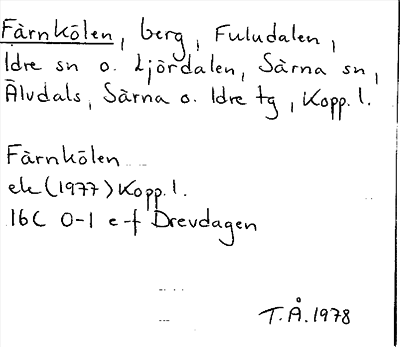 Färnkölen, berg, Fuludalen,
Idre sn o. Ljördalen, Särna sn,
Älvdals, Särna o. Idre tg, Kopp. l.
Färnkölen
ek (1977) Kopp. l.
16C 0-1 e-f Drevdagen
T.Å. 1978